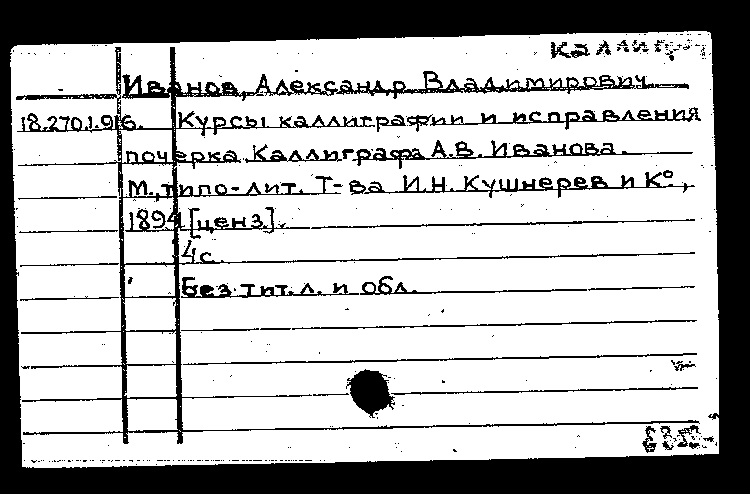 Каллигр
Иванов, Александр Владимирович
18.270.1.916. Курсы каллиграфии и исправления
почерка. Каллиграфа А.В. Иванова.
М., типо-лит. Т-ва И.Н. Кушнерев и К°,
1894 [ценз].
4с.
Без тит. л. и обл.